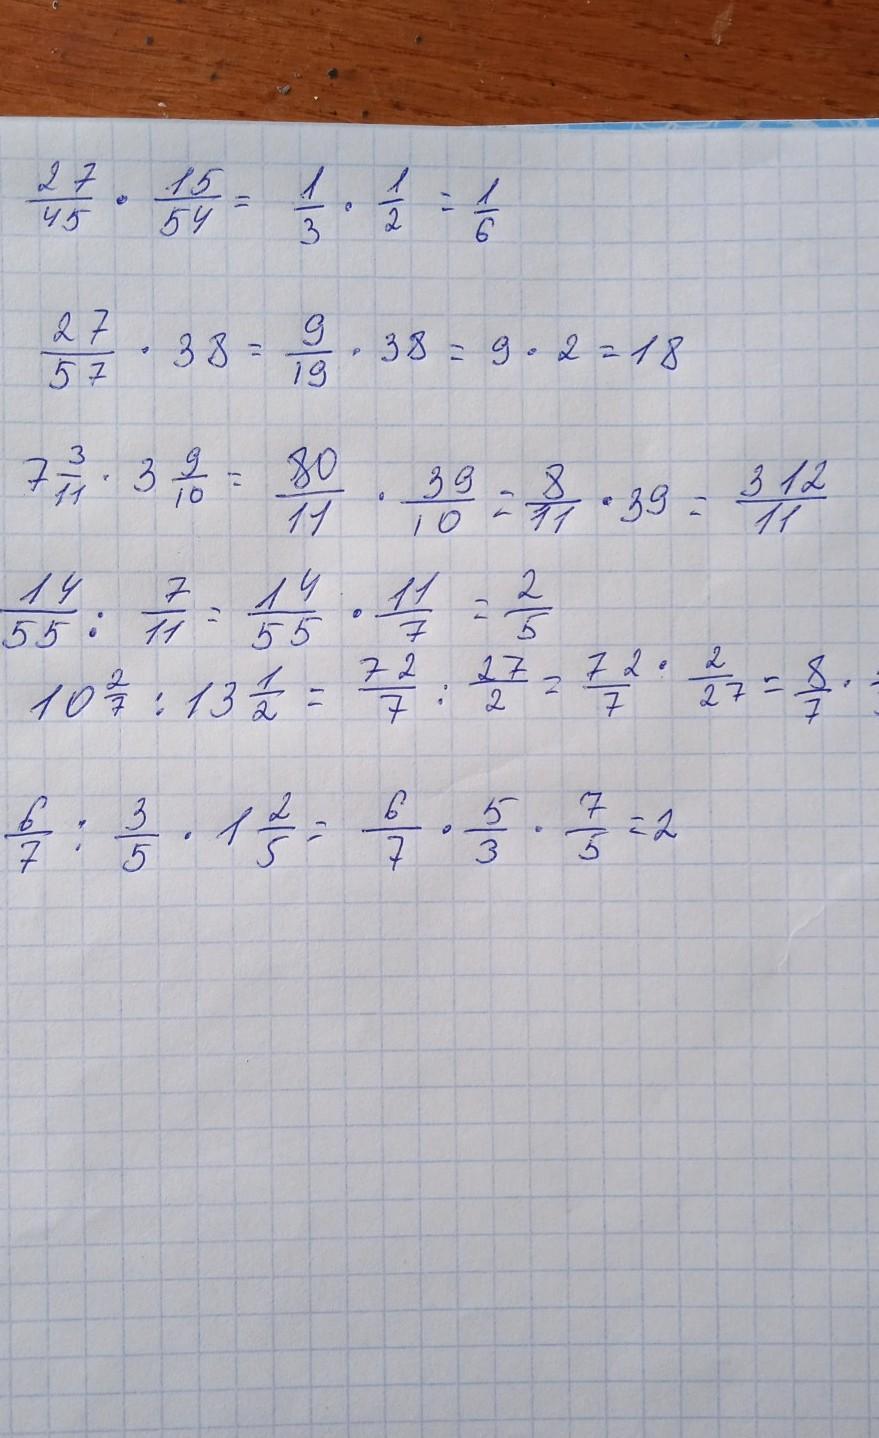 27/45 · 15/54 = 1/3 · 1/2 = 1/6
27/57 · 38 = 9/19 · 38 = 9 · 2 = 18
7 3/11 · 3 9/10 = 80/11 · 39/10 = 8/11 · 39 = 312/11
14/55 : 7/11 = 14/55 · 11/7 = 2/5
10 2/7 : 13 1/2 = 72/7 : 27/2 = 72/7 · 2/27 = 8/7 ·
6/7 : 3/5 · 1 2/5 = 6/7 · 5/3 · 7/5 = 2